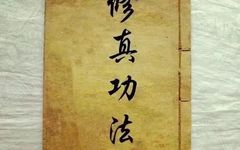 修真功法